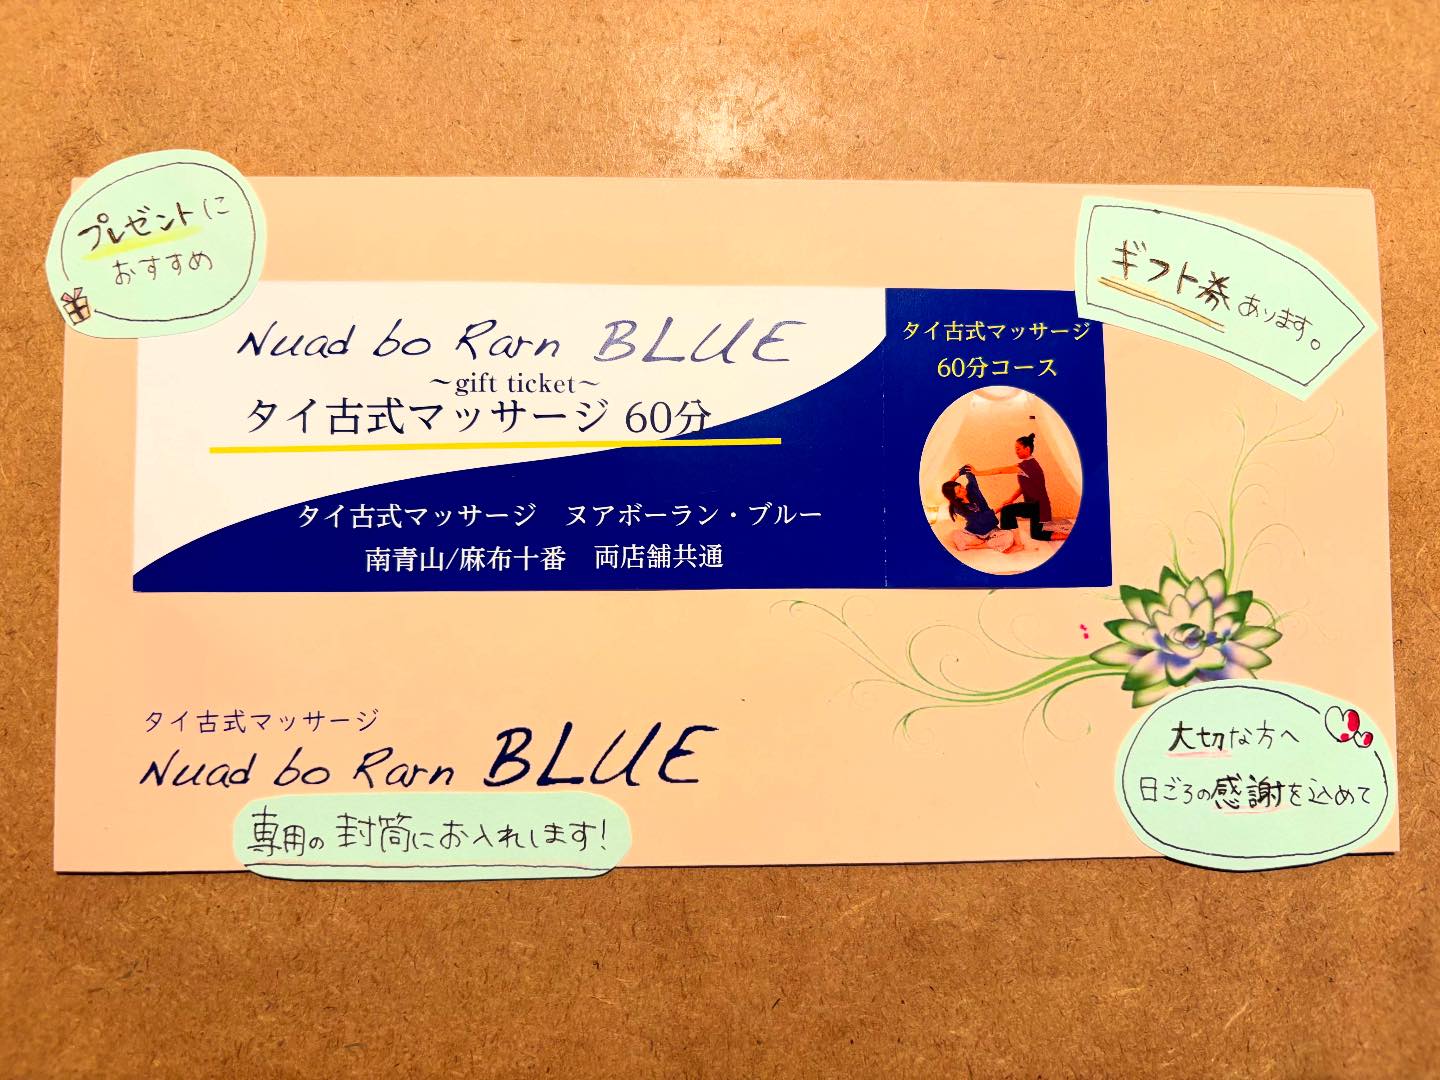 プレゼントに
おすすめ
ギフト券あります。
Nuad bo Rarn BLUE
～gift ticket～
タイ古式マッサージ 60分
タイ古式マッサージ　ヌアボーラン・ブルー
南青山/麻布十番　両店舗共通
タイ古式マッサージ
60分コース
タイ古式マッサージ
Nuad bo Rarn BLUE
専用の封筒にお入れします!
大切な方へ
日ごろの感謝を込めて